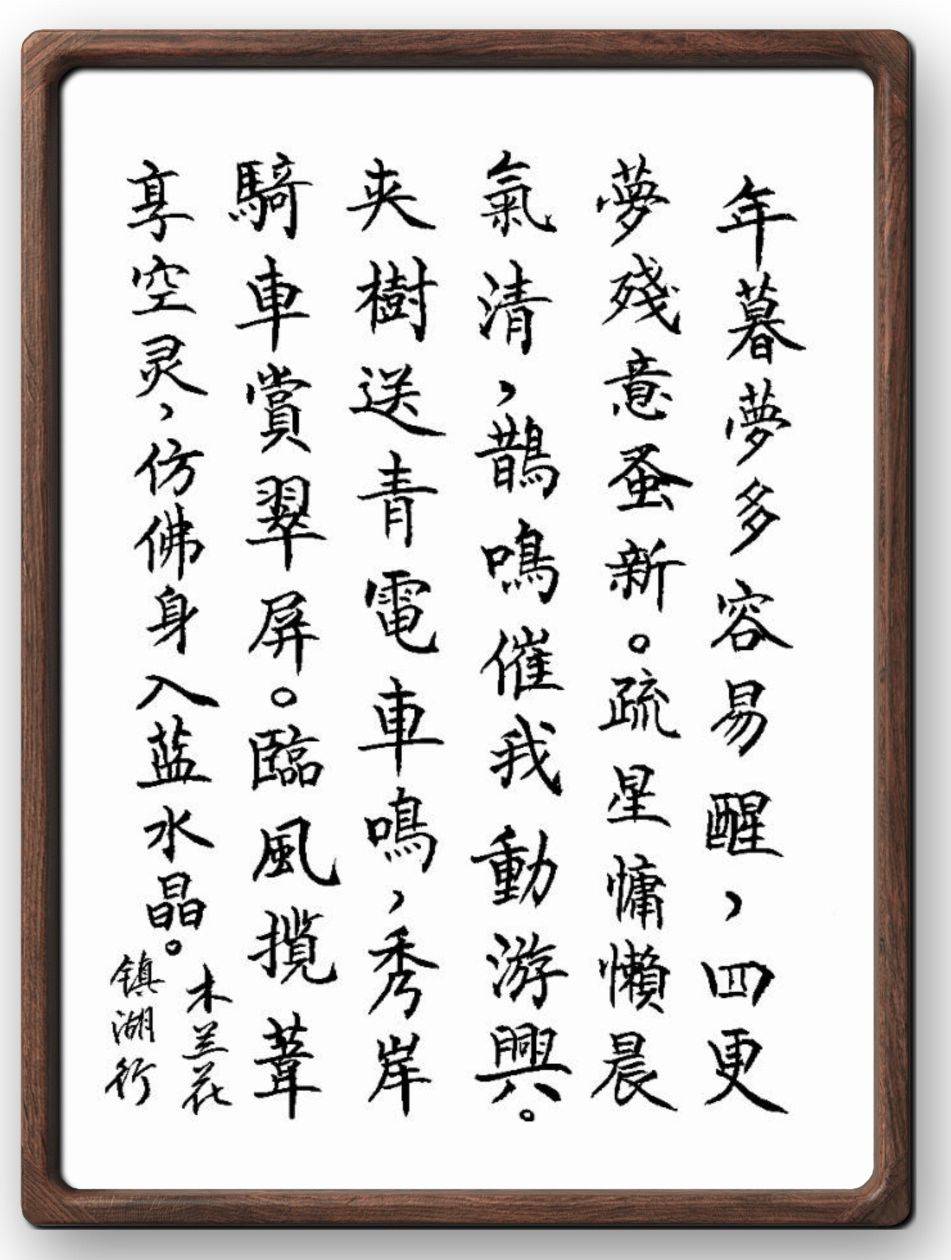 年暮夢多容易醒，四更
夢殘意蚤新。疏星慵懶晨
氣清，鵲鳴催我動游興。
夾樹送青電車鳴，秀岸
騎車賞翠屏。臨風攬葦
享空灵，仿佛身入蓝水晶。
木兰花
镇湖行